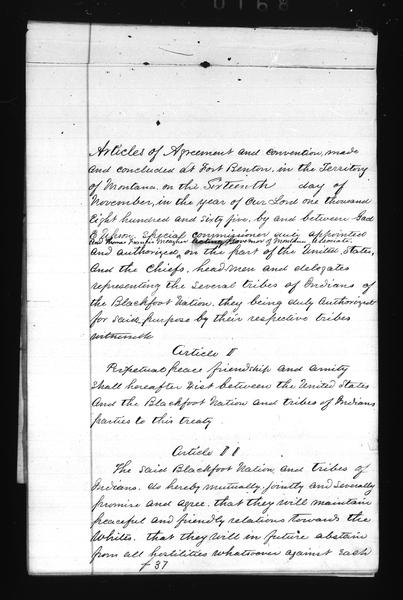 Articles of Agreement and convention, made
and concluded at Fort Benton, in the Territory
of Montana, on the Sixteenth day of
November, in the year of Our Lord one thousand
Eight hundred and Sixty five, by and between Gad
E Upson, special commissioner duly appointed
and Thomas Francis Meagher acting Governor of Montana Associate.
and authorized, on the part of the United States,
And the Chiefs, head men and delegates
representing the Several tribes of Indians of
the Blackfoot Nation, they being duly Authorized
for said purpose by their respective tribes
witnesseth
Article I
Perpetual peace friendship and amity
Shall hereafter Exist between the United States
And the Blackfoot Nation and tribes of Indians
parties to this treaty.
Article II
The said Blackfoot Nation, and tribes of
Indians, do hereby mutually, jointly and severally
promise and agree, that they will maintain
peaceful and friendly relations towards the
Whites, that they will in future abstain
from all hostilities whatsoever against each
37